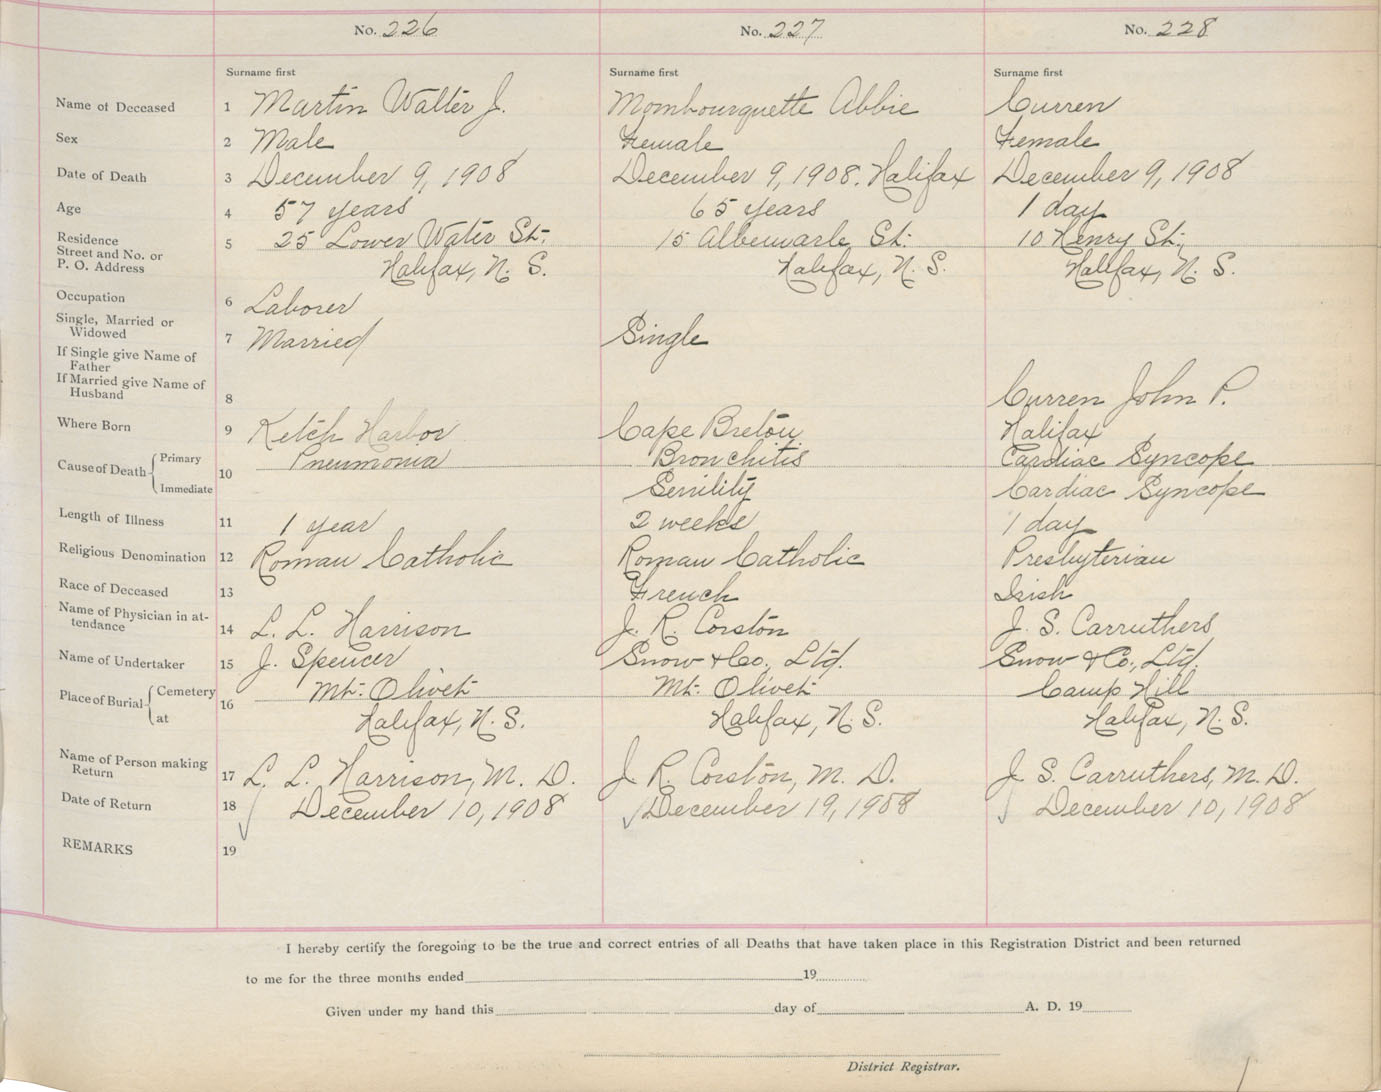 No. 226 No. 227 No. 228
Surname first Surname first Surname first
Name of Deceased 1 Martin Walter J. Mombourquette Abbie Curren
Sex 2 Male Female Female
Date of Death 3 December 9, 1908 December 9, 1908. Halifax December 9, 1908
Age 4 57 years 65 years 1 day
Residence Street and No. or P. O. Address 5 25 Lower Water St. 15 Albemarle St. 10 Henry St.
Halifax, N. S. Halifax, N. S. Halifax, N. S.
Occupation 6 Laborer
Single, Married or Widowed 7 Married Single
If Single give Name of Father
If Married give Name of Husband 8 Curren John P.
Where Born 9 Ketch Harbor Cape Breton Halifax
Cause of Death Primary 10 Pneumonia Bronchitis Cardiac Syncope
Immediate Senility Cardiac Syncope
Length of Illness 11 1 year 2 weeks 1 day
Religious Denomination 12 Roman Catholic Roman Catholic Presbyterian
Race of Deceased 13 French Irish
Name of Physician in attendance 14 L. L. Harrison J. R. Corston J. S. Carruthers
Name of Undertaker 15 J. Spencer Snow & Co., Ltd. Snow & Co., Ltd.
Place of Burial Cemetery 16 Mt. Olivet Mt. Olivet Camp Hill
at Halifax, N. S. Halifax, N. S. Halifax, N. S.
Name of Person making Return 17 L. L. Harrison, M. D. J. R. Corston, M. D. J. S. Carruthers, M. D.
Date of Return 18 December 10, 1908 December 19, 1908 December 10, 1908
REMARKS 19
I hereby certify the foregoing to be the true and correct entries of all Deaths that have taken place in this Registration District and been returned
to me for the three months ended 19
Given under my hand this day of A. D. 19
District Registrar.